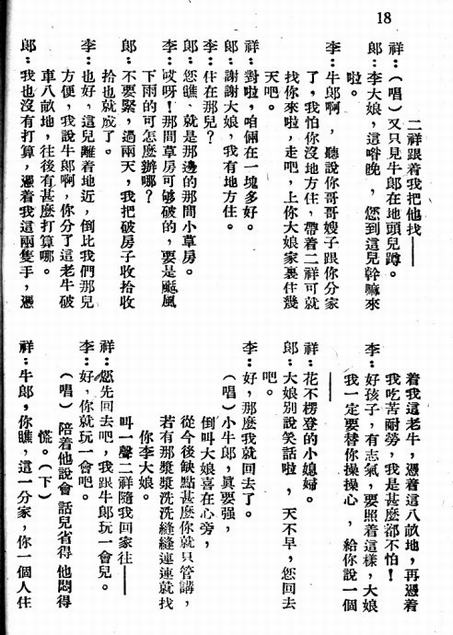 18
二祥跟着我把他找——
祥：（唱）又只見牛郎在地頭兒蹲。
郎：李大娘，這喒晚，您到這兒幹嘛來
啦。
李：牛郎啊，聽說你哥哥嫂子跟你分家
了，我怕你沒地方住，帶着二祥可就
找你來啦，走吧，上你大娘家裏住幾
天吧。
祥：對啦，咱倆在一塊多好。
郎：謝謝大娘，我有地方住。
李：住在那兒？
郎：您瞧，就是那邊的那間小草房。
李：哎呀！那間草房可够破的，要是颳風
下雨的可怎麼辦哪？
郎：不要緊，過兩天，我把破房子收拾收
拾也就成了。
李：也好，這兒離着地近，倒比我們那兒
方便，我說牛郎啊，你分了這老牛破
車八畝地，往後有甚麼打算哪。
郎：我也沒有打算，憑着我這兩隻手，憑
着我這老牛，憑着這八畝地，再憑着
我吃苦耐勞，我是甚麼都不怕！
李：好孩子，有志氣，要照着這樣，大娘
我一定要替你操操心，給你說一個
——
祥：花不楞登的小媳婦。
郎：大娘別說笑話啦，天不早，您回去
吧。
李：好，那麼我就回去了。
（唱）小牛郎，真要强，
倒叫大娘喜在心旁，
從今後缺點甚麼你就只管講，
若有那漿漿洗洗縫縫連連就找
你李大娘。
叫一聲二祥隨我回家往——
祥：您先回去吧，我跟牛郎玩一會兒。
李：好，你就玩一會吧。
（唱）陪着他說會話兒省得他悶得
慌。（下）
祥：牛郎，你瞧，這一分家，你一個人住